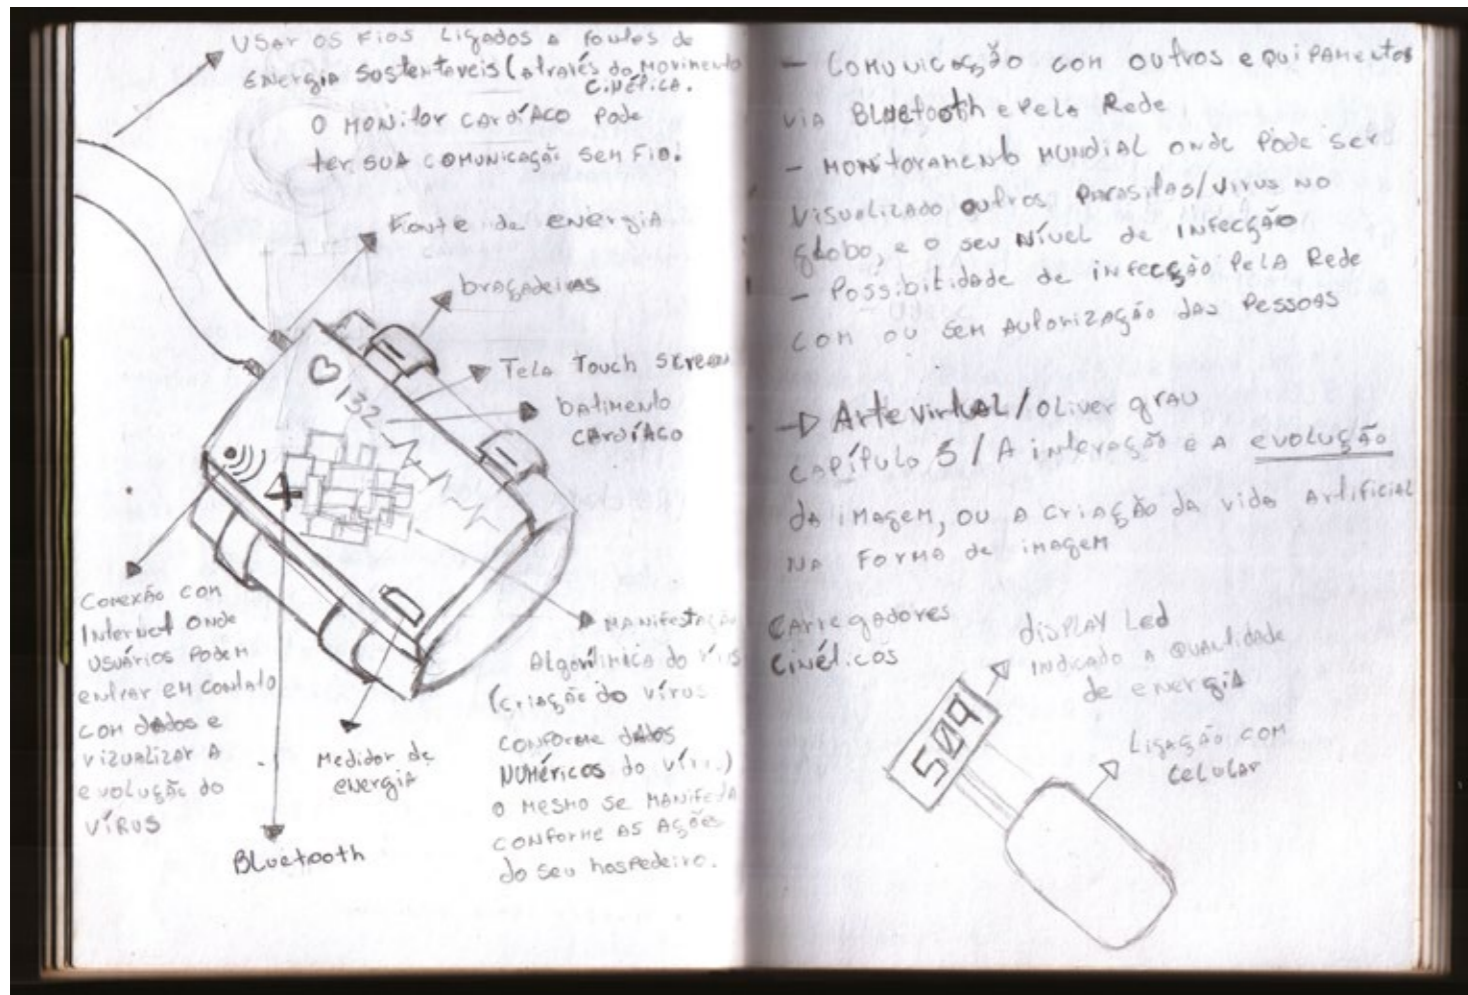 USAr OS FiOS LigAdos A foNtes de
ENErgiA SustentAveis (Através do MoviMENto
CiNéticA.
O MONitor CArdíACo Pode
ter SUA COMUNiCAção SEM Fio!
Fonte de energiA
braçadeiras
TelA Touch Screen
132
batiMento
CArdíACo
Conexão con
Internet Onde
USUários PodeM
entrar eM contato
COM dados e
vizualizar A
evolução do
VÍRUS
Bluetooth
Medidor de
eNergiA
MANifestAção
AlgorítimicA do vírus
(criAção do vírus
CONFOrMe dAdos
NUMéricos do vírus)
O MesMo se MANifestA
CONFOrMe AS Ações
do seu hospedeiro.
- COMUNicAção COM outros equiPAMentos
viA Bluetooth e Pela Rede
- MONitorAMento MUNDIAL onde Pode ser
VisuAlizAdo outros PArAsitAs/virus NO
globo, e o seu Nível de INFecção
- Possibilidade de infecção PelA Rede
COM OU SEM AutorizAção das Pessoas
Arte virtual / oliver grau
CAPítulo 5 / A interAção e A evolução
dA iMAgeM, ou A CriAção da vida Artificial
NA ForMA de iMAgeM
CArregAdores
CiNéticos
disPLAY Led
INdicAdo A QUANtidade
de energiA
509
LigAção COM
CeluLAr